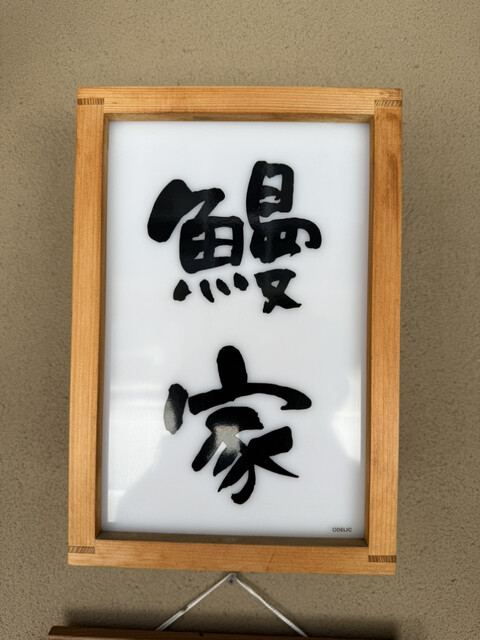 鰻
家
ODELIC